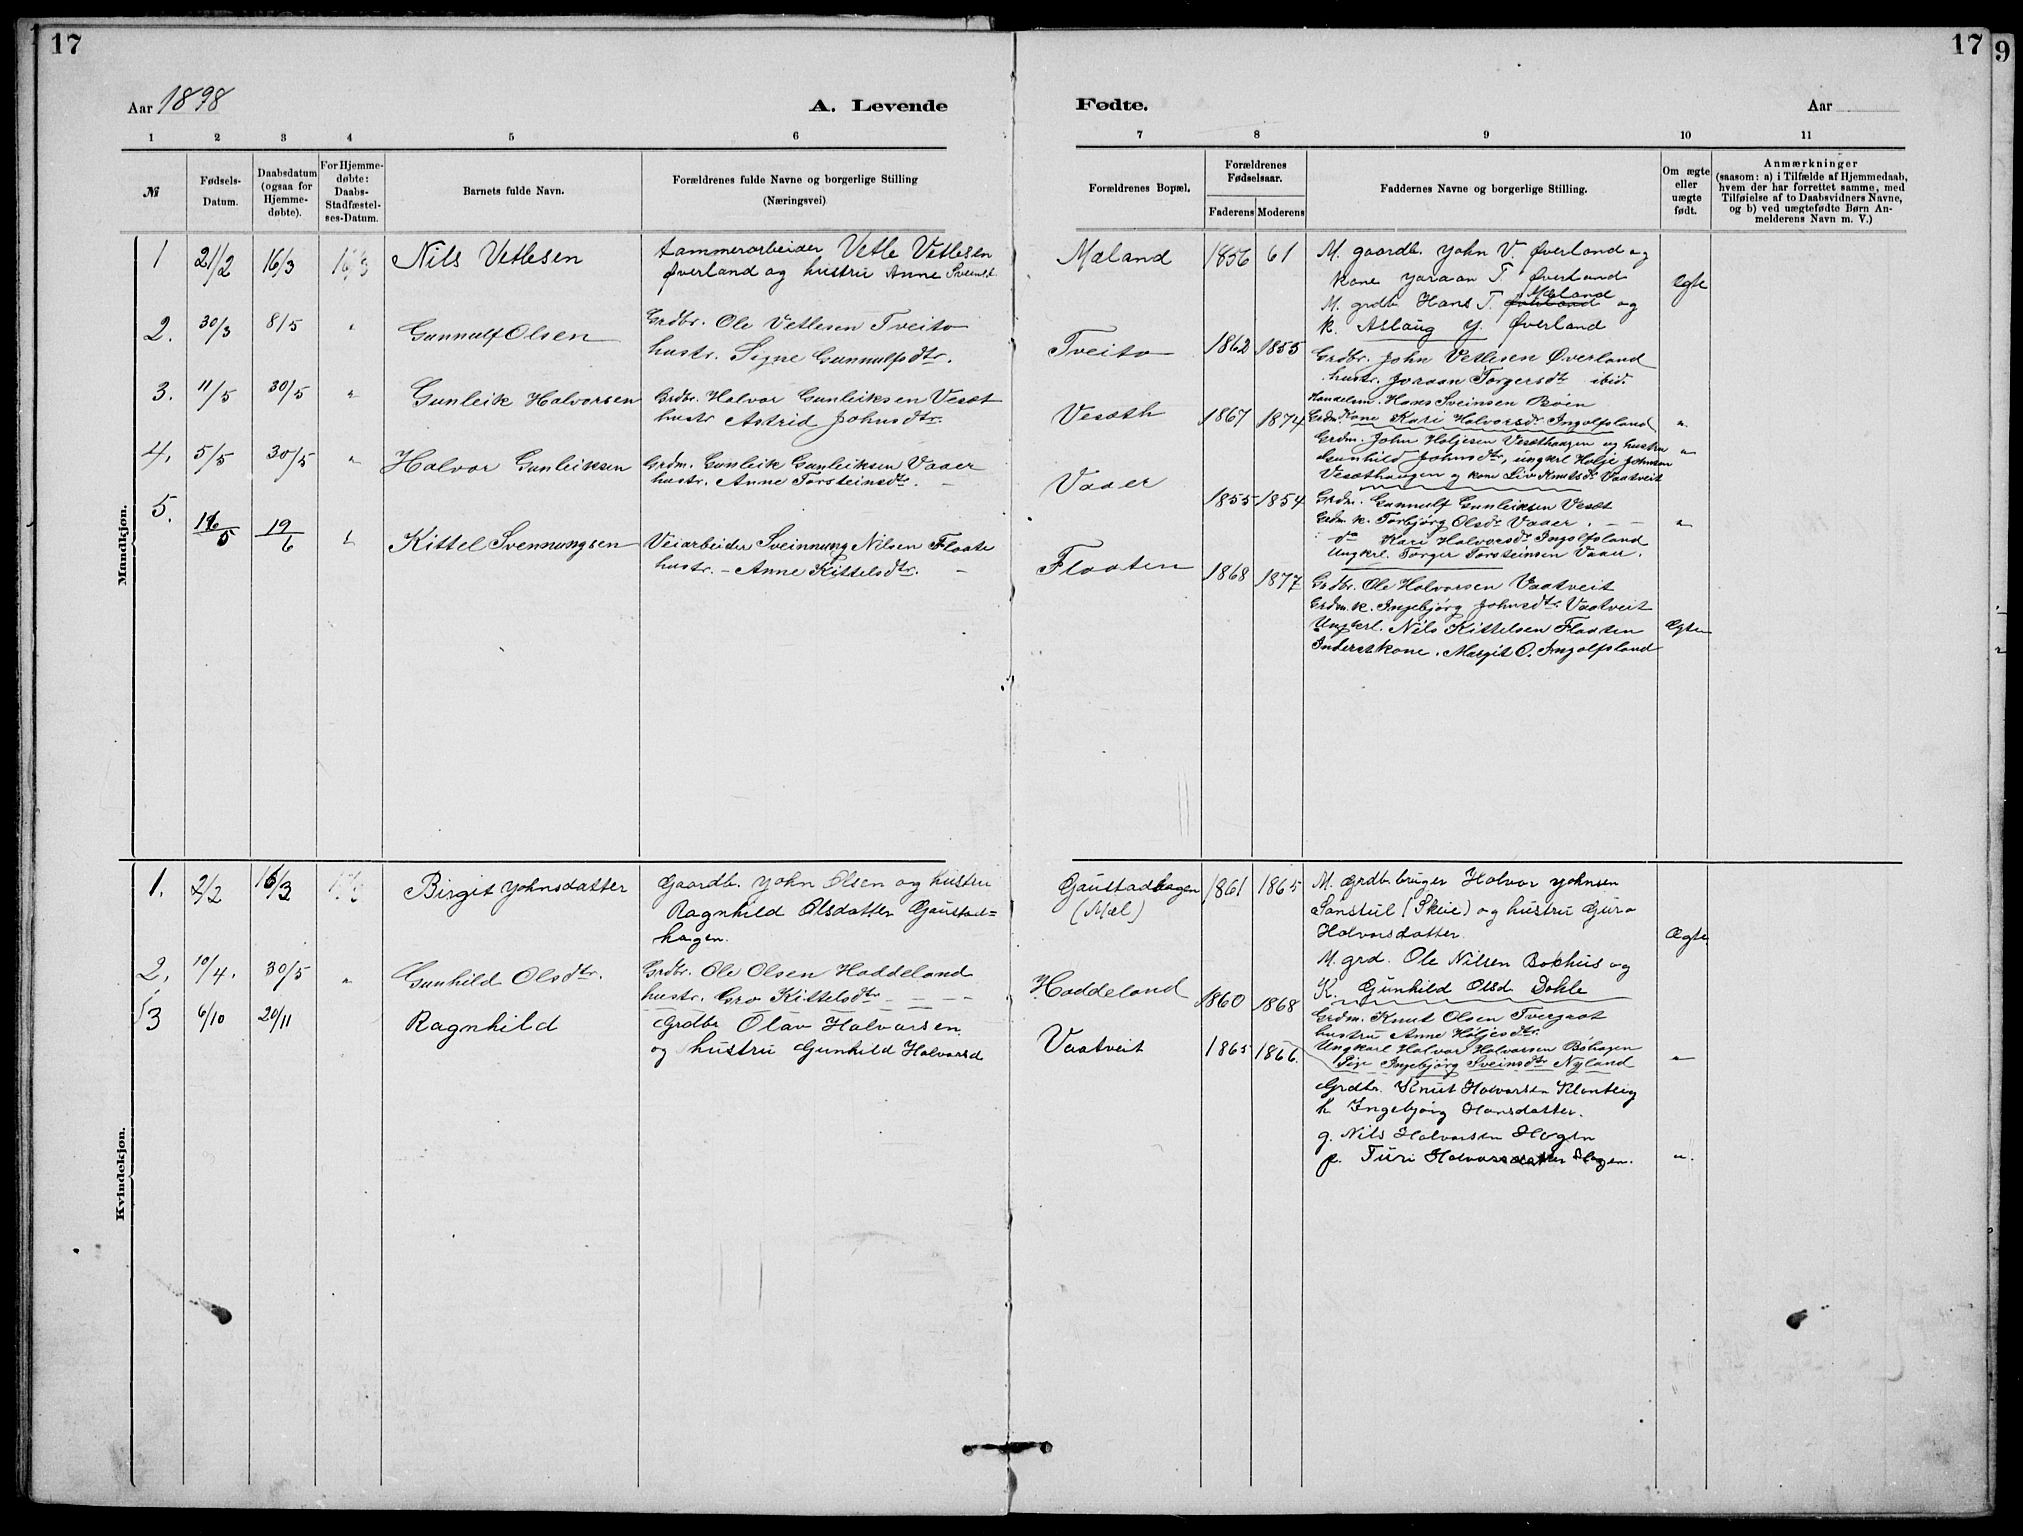 17
17
9
Aar 1898
A. Levende
Fødte.
Aar
1 2 3 4 5 6
7 8 9 10 11
№
Fødsels-
Datum.
Daabsdatum
(ogsaa for
Hjemme-
døbte).
For Hjemme-
døbte:
Daabs-
Stadfæstel-
ses-Datum.
Barnets fulde Navn.
Forældrenes fulde Navne og borgerlige Stilling
(Næringsvei)
Forældrenes Bopæl.
Forældrenes
Fødselsaar.
Faderens Moderens
Faddernes Navne og borgerlige Stilling.
Om ægte
eller
uægte
født.
Anmærkninger
(saasom: a) i Tilfælde af Hjemmedaab,
hvem der har forrettet samme, med
Tilføielse af to Daabsvidners Navne,
og b) ved uægtefødte Børn An-
melderens Navn m. V.)
Mandkjøn.
1 21/2 16/3 16/3 Nils Vetlesen
tammerarbeider Vetle Vetlesen
Øverland og hustru Anne
Mæland 1856 61
M. gaardb. John V. Øverland og
kone Joraan T. Øverland
M. grdb. Hans T. Øverland Mæland og
k. Aslaug J. Øverland
Ægte
2. 30/3 8/5 " Gunnulf Olsen
Grdbr. Ole Vetlesen Tveito
hustr. Signe Gunnulfsdtr.
Tveito 1862 1855
Grdbr. John Vetlesen Øverland
hustr. Joraan Torgersdtr ibid.
Handelsm. Hans Sveinsen Bøen
Grdm. Kone Kari Halvorsdr. Ingolfsland
"
3. 11/5 30/5 " Gunleik Halvorsen
Grdbr. Halvor Gunleiksen Vesæt
hustr Astrid Johnsdtr.
Vesæth 1867 1874
Grdm. John Holjesen Vesæthaugen og hustru
Gunhild Johnsdtr, ungkrl Holje Johnsen
Vesæthaugen og kone Liv Knutsdr. Vaatveit
"
4. 5/5 30/5 " Halvor Gunleiksen
Grdm. Gunleik Gunleiksen Vaaer
hustr. Anne Torsteinsdtr. –
Vaaer 1855 1854
Grdm. Gunnulf Gunleiksen Vesæt
Grdm. k. Torbjørg Olsdr Vaaer. – –
do Kari Halvorsdr. Ingolfsland
Ungkrl. Torger Torsteinsen Vaaer.
"
5. 16/5 19/6 " Kittel Svennungsen
Veiarbeider Sveinnung Nilsen Flaate
hustr. – Anne Kittelsdtr. –
Flaaten 1868 1877
Grdbr. Ole Halvorsen Vaatveit
Grdm. k. Ingebjørg Johnsdtr. Vaatveit
Ungkrl. Nils Kittelsen Flaaten
Inderstkone. Margit O. Ingolfsland
Ægte
Kvindekjøn.
1. 2/2 16/3 Birgit Johnsdatter
Gaardb. John Olsen og hustru
Ragnhild Olsdatter Gaustad=
hagen.
Gaustadhagen
(Mæl)
1861 1865
M. Grdb.bruger Halvor Johnsen
Sanstul (Skeie) og hustru Guro
Halvorsdatter.
M. grd. Ole Nilsen Bakhus og
K. Gunhild Olsd Dahle
Ægte
2. 10/4. 30/5 " Gunhild Olsdtr.
Grdbr. Ole Olsen Haddeland
hustr. Gro Kittelsdtr – – – –
Haddeland 1860 1868
Grdm. Knut Olsen Tvergaat
hustru Anne Høljesdtr.
Ungkarl Halvor Halvorsen Bøhagen
Pige Ingebjørg Sveinsdtr. Nyland
"
3 6/10 20/11 Ragnhild
Grdbr Olav Halvarsen
og hustru Gunhild Halvarsd
Vaatveit 1865 1866.
Grdbr. Knut Halvarsen
h Ingebjørg Hansdatter.
g. Nils Halvarsen Hagen
p. Turi Halvarsdatter Hagen.
"